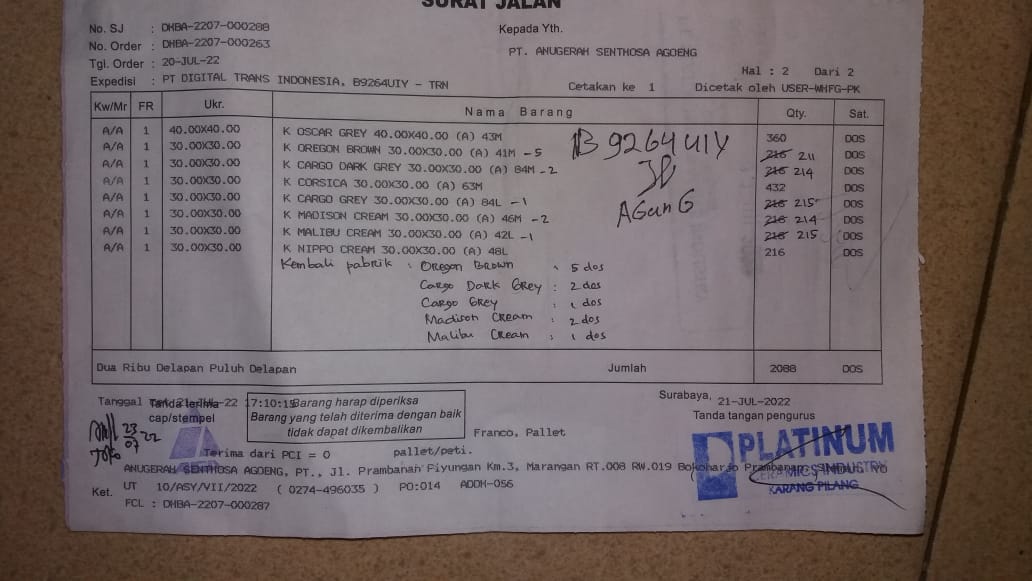 SURAT JALAN
No. SJ : DHBA-2207-000288
Kepada Yth.
No. Order : DHBA-2207-000263
PT. ANUGERAH SENTHOSA AGOENG
Tgl. Order : 20-JUL-22
Hal : 2 Dari 2
Expedisi : PT DIGITAL TRANS INDONESIA, B9264UIY - TRN
Cetakan ke 1 Dicetak oleh USER-WHFG-PK
Kw/Mr FR Ukr. Nama Barang Qty. Sat.
A/A 1 40.00X40.00 K OSCAR GREY 40.00X40.00 (A) 43M 360 DOS
A/A 1 30.00X30.00 K OREGON BROWN 30.00X30.00 (A) 41M -5 216 211 DOS
A/A 1 30.00X30.00 K CARGO DARK GREY 30.00X30.00 (A) 84M -2 216 214 DOS
A/A 1 30.00X30.00 K CORSICA 30.00X30.00 (A) 63M 432 DOS
A/A 1 30.00X30.00 K CARGO GREY 30.00X30.00 (A) 84L -1 216 215 DOS
A/A 1 30.00X30.00 K MADISON CREAM 30.00X30.00 (A) 46M -2 216 214 DOS
A/A 1 30.00X30.00 K MALIBU CREAM 30.00X30.00 (A) 42L -1 216 215 DOS
A/A 1 30.00X30.00 K NIPPO CREAM 30.00X30.00 (A) 48L 216 DOS
B 9264 UIY
AGunG
Kembali pabrik : Oregon Brown : 5 dos
Cargo Dark Grey : 2 dos
Cargo Grey : 1 dos
Madison Cream : 2 dos
Malibu Cream : 1 dos
Dua Ribu Delapan Puluh Delapan Jumlah 2088 DOS
Tanggal 21-JUL-22 17:10:15
Tanda terima
cap/stempel
Barang harap diperiksa
Barang yang telah diterima dengan baik
tidak dapat dikembalikan
Surabaya, 21-JUL-2022
Tanda tangan pengurus
23
07 22
TOKO
Franco, Pallet
Terima dari PCI = 0 pallet/peti.
PLATINUM
CERAMICS INDUSTRY
KARANG PILANG
ANUGERAH SENTHOSA AGOENG, PT., Jl. Prambanan Piyungan Km.3, Marangan RT.008 RW.019 Bokoharjo Prambanan
Ket. UT 10/ASY/VII/2022 ( 0274-496035 ) PO:014 ADDH-056
FCL : DHBA-2207-000287